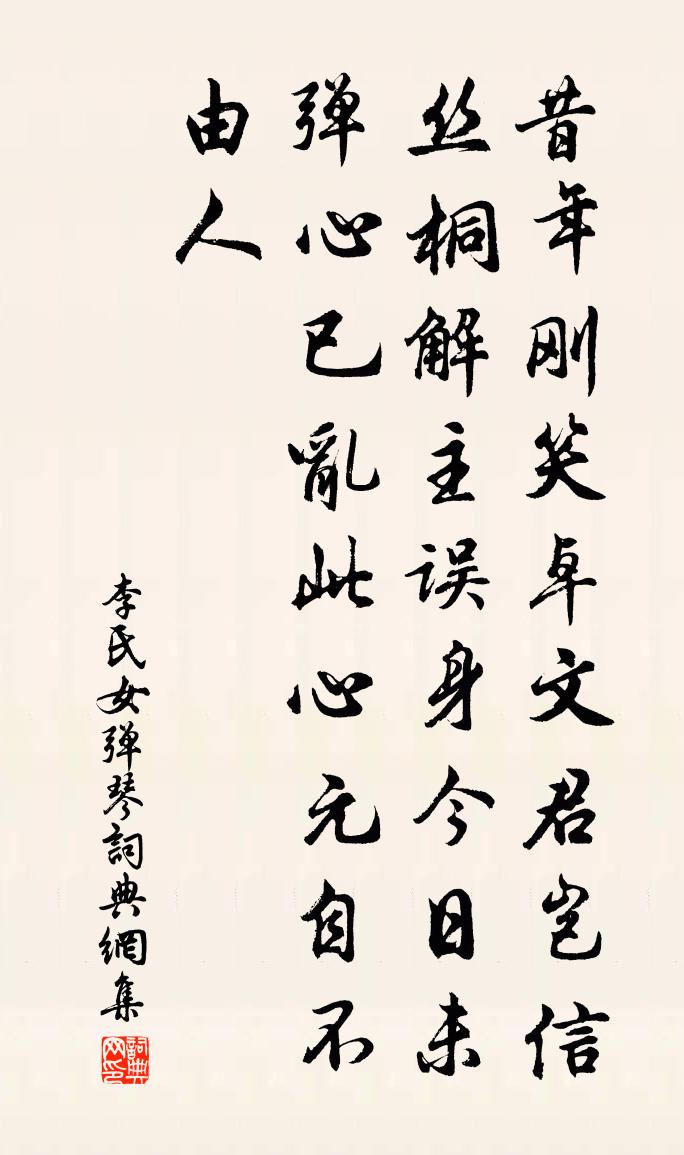 昔年刚笑卓文君岂信
丝桐解主误身今日未
弹心已亂此心元自不
由人
李氏女弹琴詞典網集
詞典网印